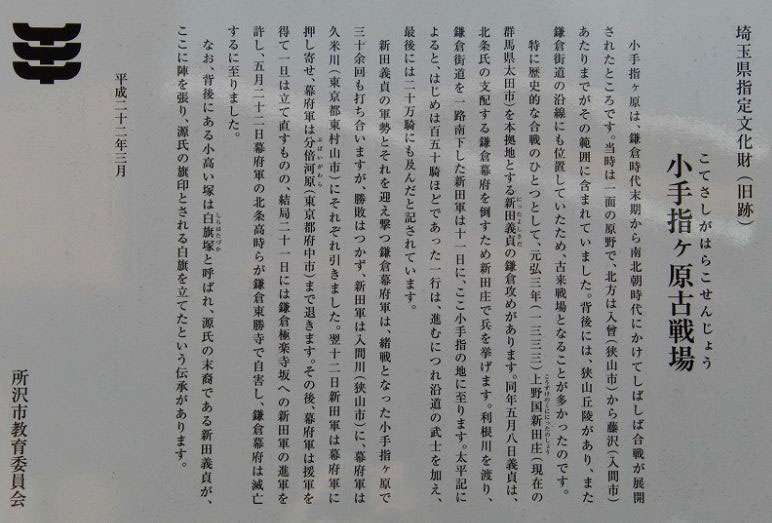 埼玉県指定文化財（旧跡）
こてさしがはらこせんじょう
小手指ヶ原古戦場
小手指ヶ原は、鎌倉時代末期から南北朝時代にかけてしばしば合戦が展開
されたところです。当時は一面の原野で、北方は入曾（狭山市）から藤沢（入間市）
あたりまでがその範囲に含まれていました。背後には、狭山丘陵があり、また
鎌倉街道の沿線にも位置していたため、古来戦場となることが多かったのです。
特に歴史的な合戦のひとつとして、元弘三年（一三三三）上野国新田庄（現在の
こうずけのくににったのしょう
群馬県太田市）を本拠地とする新田義貞の鎌倉攻めがあります。同年五月八日義貞は、
にったよしさだ
北条氏の支配する鎌倉幕府を倒すため新田庄で兵を挙げます。利根川を渡り、
鎌倉街道を一路南下した新田軍は十一日に、ここ小手指の地に至ります。太平記に
よると、はじめは百五十騎ほどであった一行は、進むにつれ沿道の武士を加え、
最後には二十万騎にも及んだと記されています。
新田義貞の軍勢とそれを迎え撃つ鎌倉幕府軍は、緒戦となった小手指ヶ原で
三十余回も打ち合いますが、勝敗はつかず、新田軍は入間川（狭山市）に、幕府軍は
久米川（東京都東村山市）にそれぞれ引きました。翌十二日新田軍は幕府軍に
押し寄せ、幕府軍は分倍河原（東京都府中市）まで退きます。その後、幕府軍は援軍を
ぶばいがわら
得て一旦は立て直すものの、結局二十一日には鎌倉極楽寺坂への新田軍の進軍を
許し、五月二十二日幕府軍の北条高時らが鎌倉東勝寺で自害し、鎌倉幕府は滅亡
するに至りました。
なお、背後にある小高い塚は白旗塚と呼ばれ、源氏の末裔である新田義貞が、
しらはたづか
ここに陣を張り、源氏の旗印とされる白旗を立てたという伝承があります。
平成二十二年三月
所沢市教育委員会